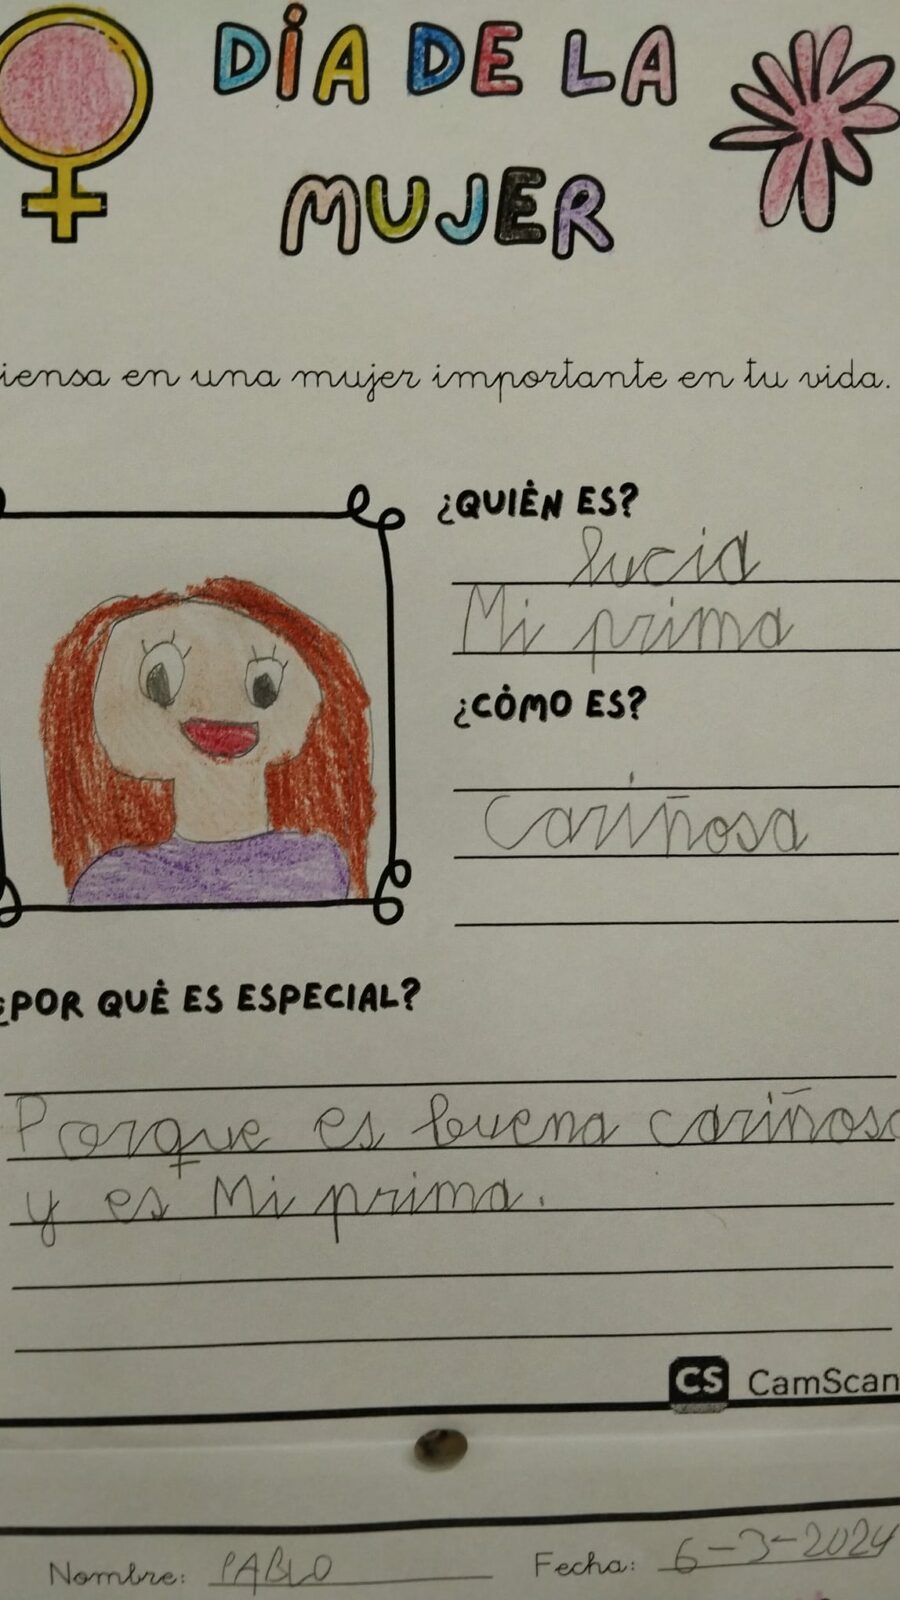 DÍA DE LA
MUJER
iensa en una mujer importante en tu vida.
¿QUIÉN ES?
Lucia
Mi prima
¿CÓMO ES?
Cariñosa
¿POR QUÉ ES ESPECIAL?
Porque es buena cariñosa
y es Mi prima.
CS CamScan
Nombre: PABLO Fecha: 6-3-2024